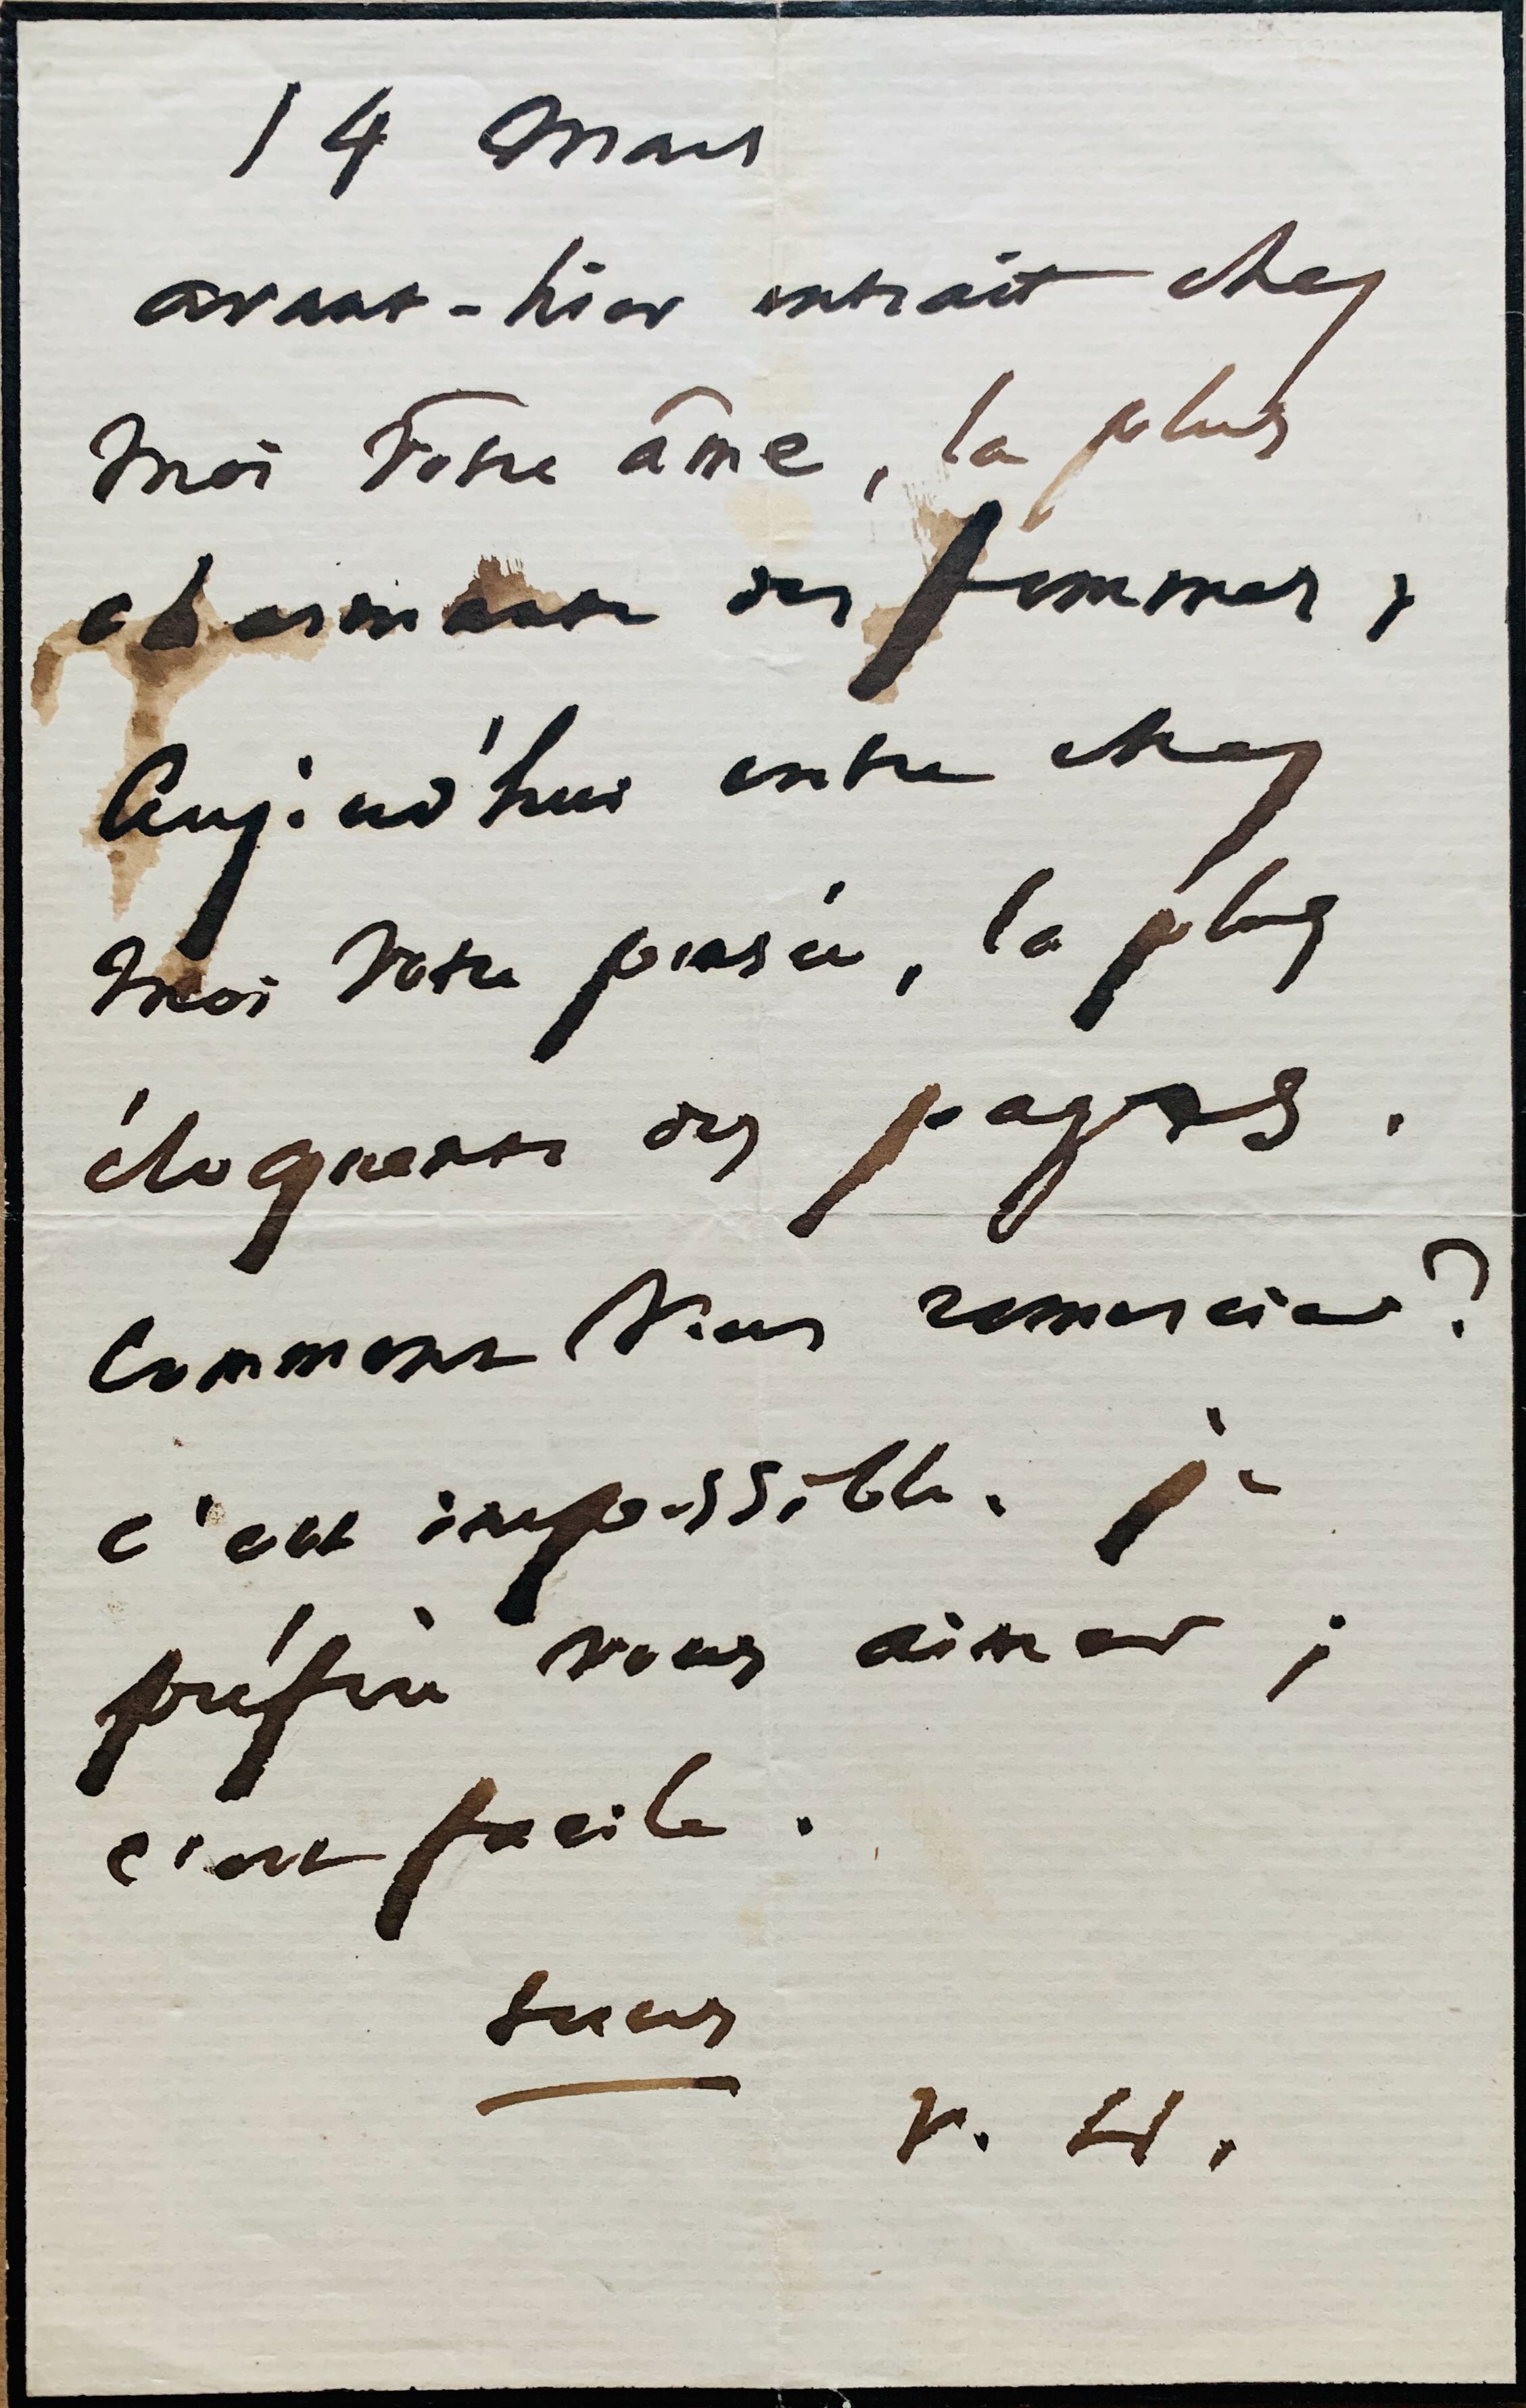 14 mars
avant-hier entrait chez
moi votre âme, la plus
charmante des femmes,
Aujourd'hui entre chez
moi votre pensée, la plus
éloquente des pages.
Comment vous remercier ?
c'est impossible. je
préfère vous aimer ;
c'est facile.
tuus
V. H.